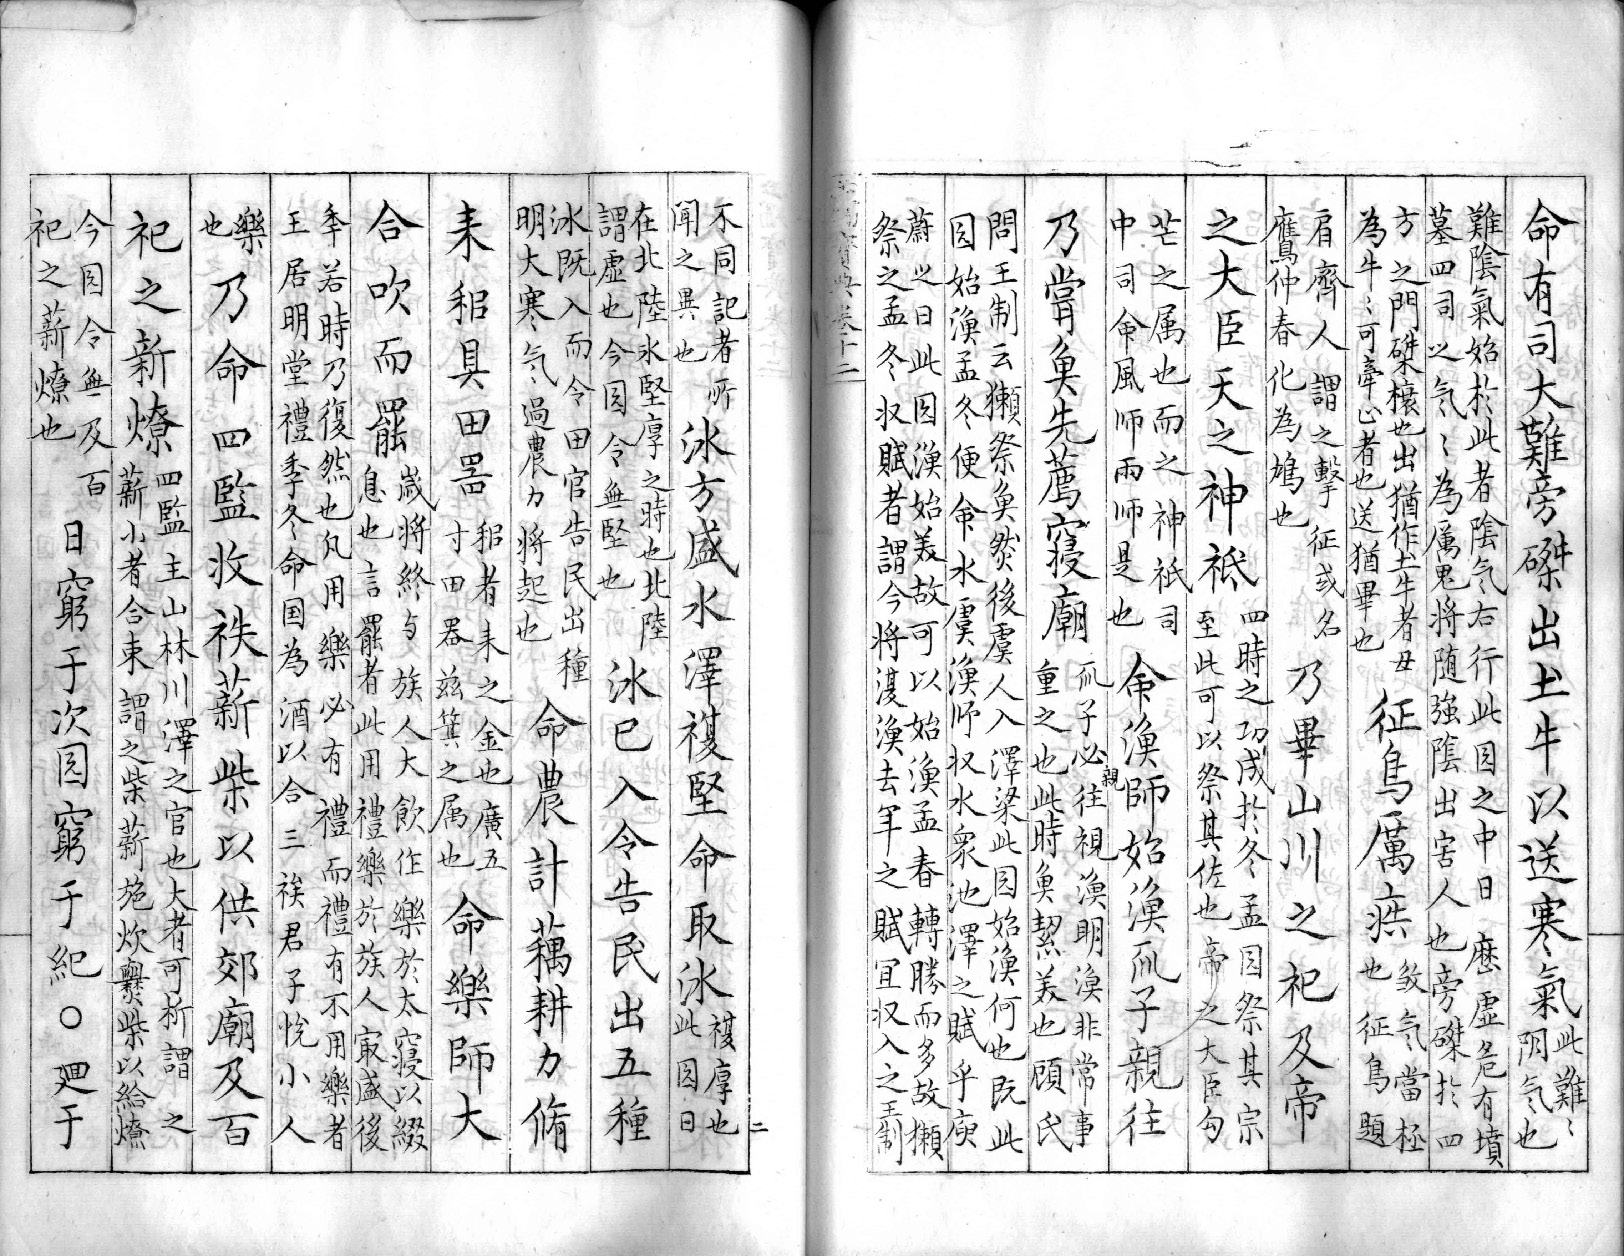 命有司大難旁磔出土牛以送寒氣此難〻阴気也
難陰氣始於此者陰気右行此囯之中日歴虛危有墳
墓四司之気〻為厲鬼将随強陰出害人也旁磔於四
方之門磔禳也出猶作土牛者丑
為牛〻可牽止者也送猶畢也
征鳥厲疾殺気當極也征鳥題
肩齊人謂之擊征或名
鷹仲春化為鳩也
乃畢山川之祀及帝
之大臣天之神祇四時之功成於冬孟囯祭其宗至此可以祭其佐也帝之大臣句
芒之属也而之神祇司
中司命風师雨师是也
命漁師始漁孤子親往
乃甞魚先薦寢廟孤子必親往視漁明漁非常事重之也此時魚絜美也頋氏
問王制云獺祭魚然後虞人入澤梁此囯始漁何也既此
囯始漁孟冬便命水虞漁师収水衆池澤之賦乎庾
蔚之曰此囯漁始美故可以始漁孟春轉勝而多故獺
祭之孟冬収賦者謂今将復漁去年之賦冝収入之王制
寳典卷十二
不同記者所
聞之異也
冰方盛水澤複堅命取冰複厚也此囯日
在北陸冰堅厚之時也北陸
謂虛也今囯令無堅也
冰已入令告民出五種
冰既入而令田官告民出種
明大寒気過農力将起也
命農計耦耕力脩
耒耜具田器耜者耒之金也廣五寸田器兹箕之属也命樂師大
合吹而罷歲将終与族人大飲作樂於太寢以綴息也言罷者此用禮樂於族人㝡盛後
季若時乃復然也凡用樂必有禮而禮有不用樂者
王居明堂禮季冬命国為酒以合三族君子悅小人
樂也
乃命四監收袟薪柴以供郊廟及百
祀之薪燎四監主山林川澤之官也大者可析謂之薪小者合束謂之柴薪施炊爨柴以給燎
今囯令無及百
祀之薪燎也
日窮于次囯窮于紀○廻于
二